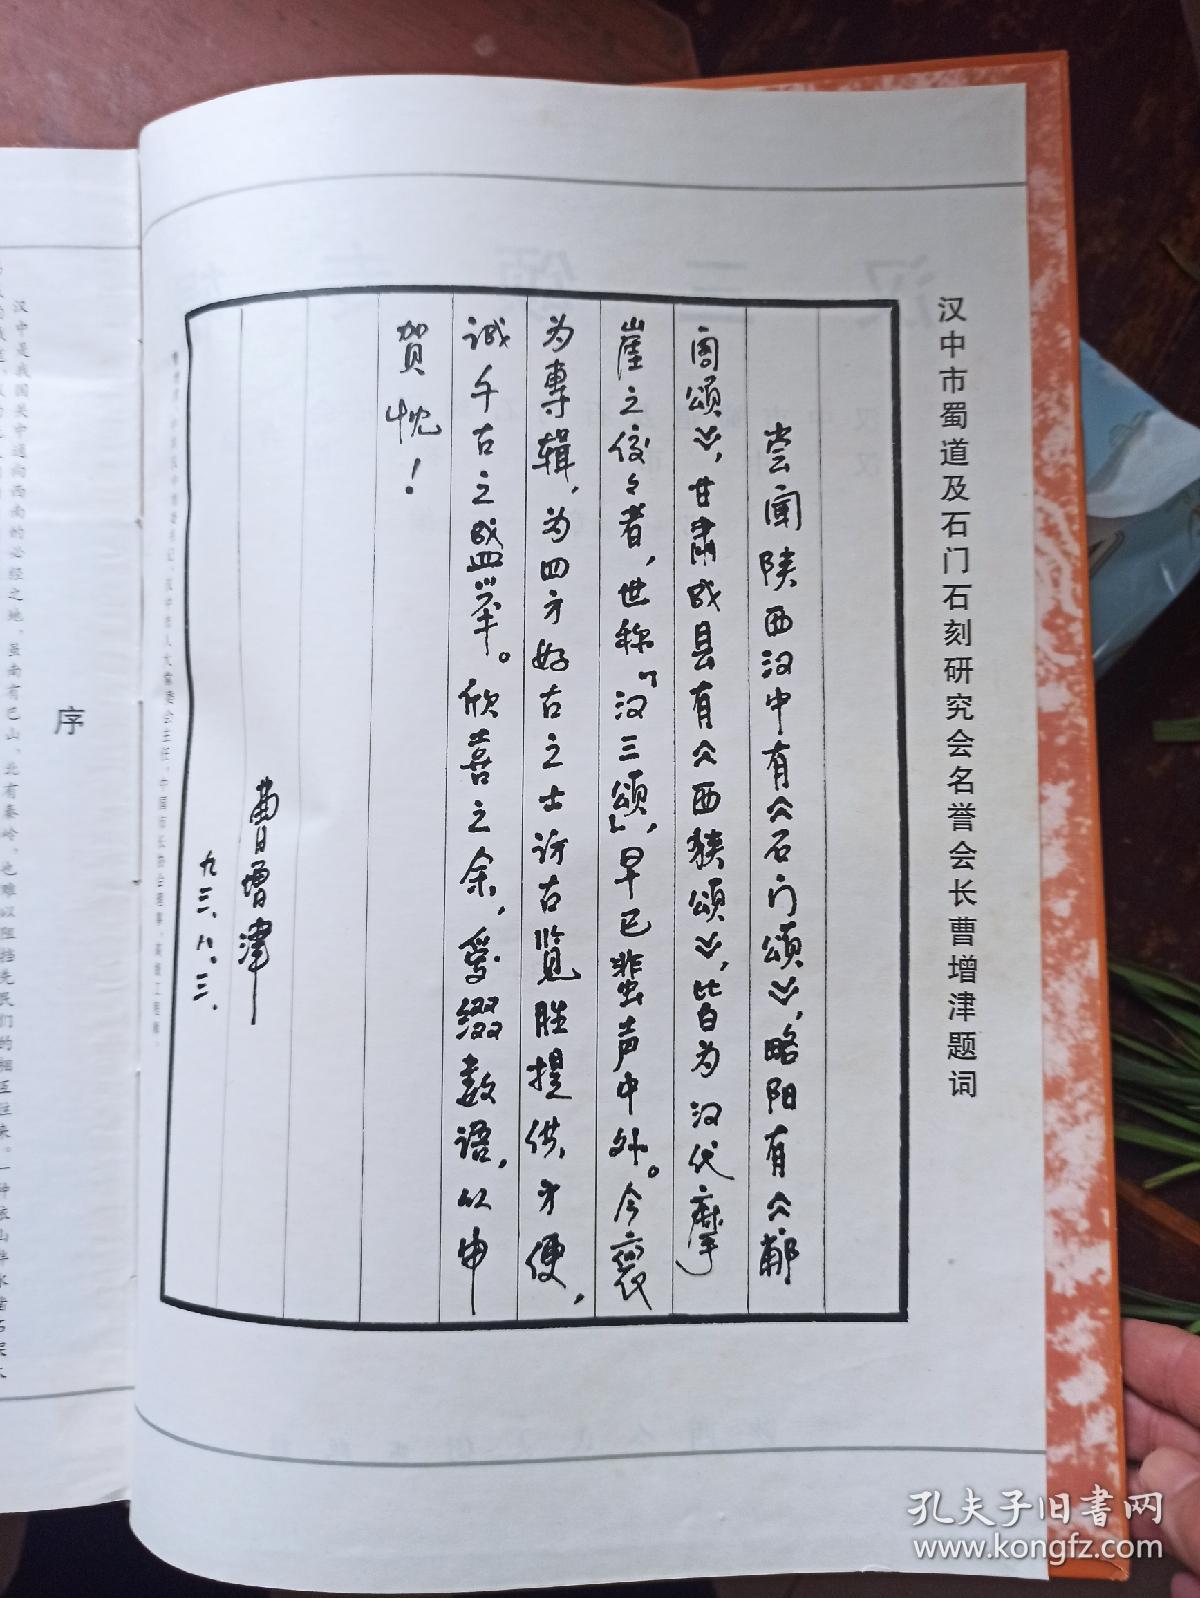 汉中市蜀道及石门石刻研究会名誉会长曹增津题词
尝闻陕西汉中有《石门颂》，略阳有《郙
阁颂》，甘肃成县有《西狭颂》，皆为汉代摩
崖之佼々者，世称「汉三颂」，早已蜚声中外。今裒
为專辑，为四方好古之士访古览胜提供方便，
诚千古之盛举。欣喜之余，爰缀数语，以申
贺忱！
曹增津
九三、八、三、
序
汉中是我国关中通向西南的必经之地，虽南有巴山，北有秦岭，也难以阻挡先民们的相互往来。一种依山傍水凿石架木
孔夫子旧书网
www.kongfz.com